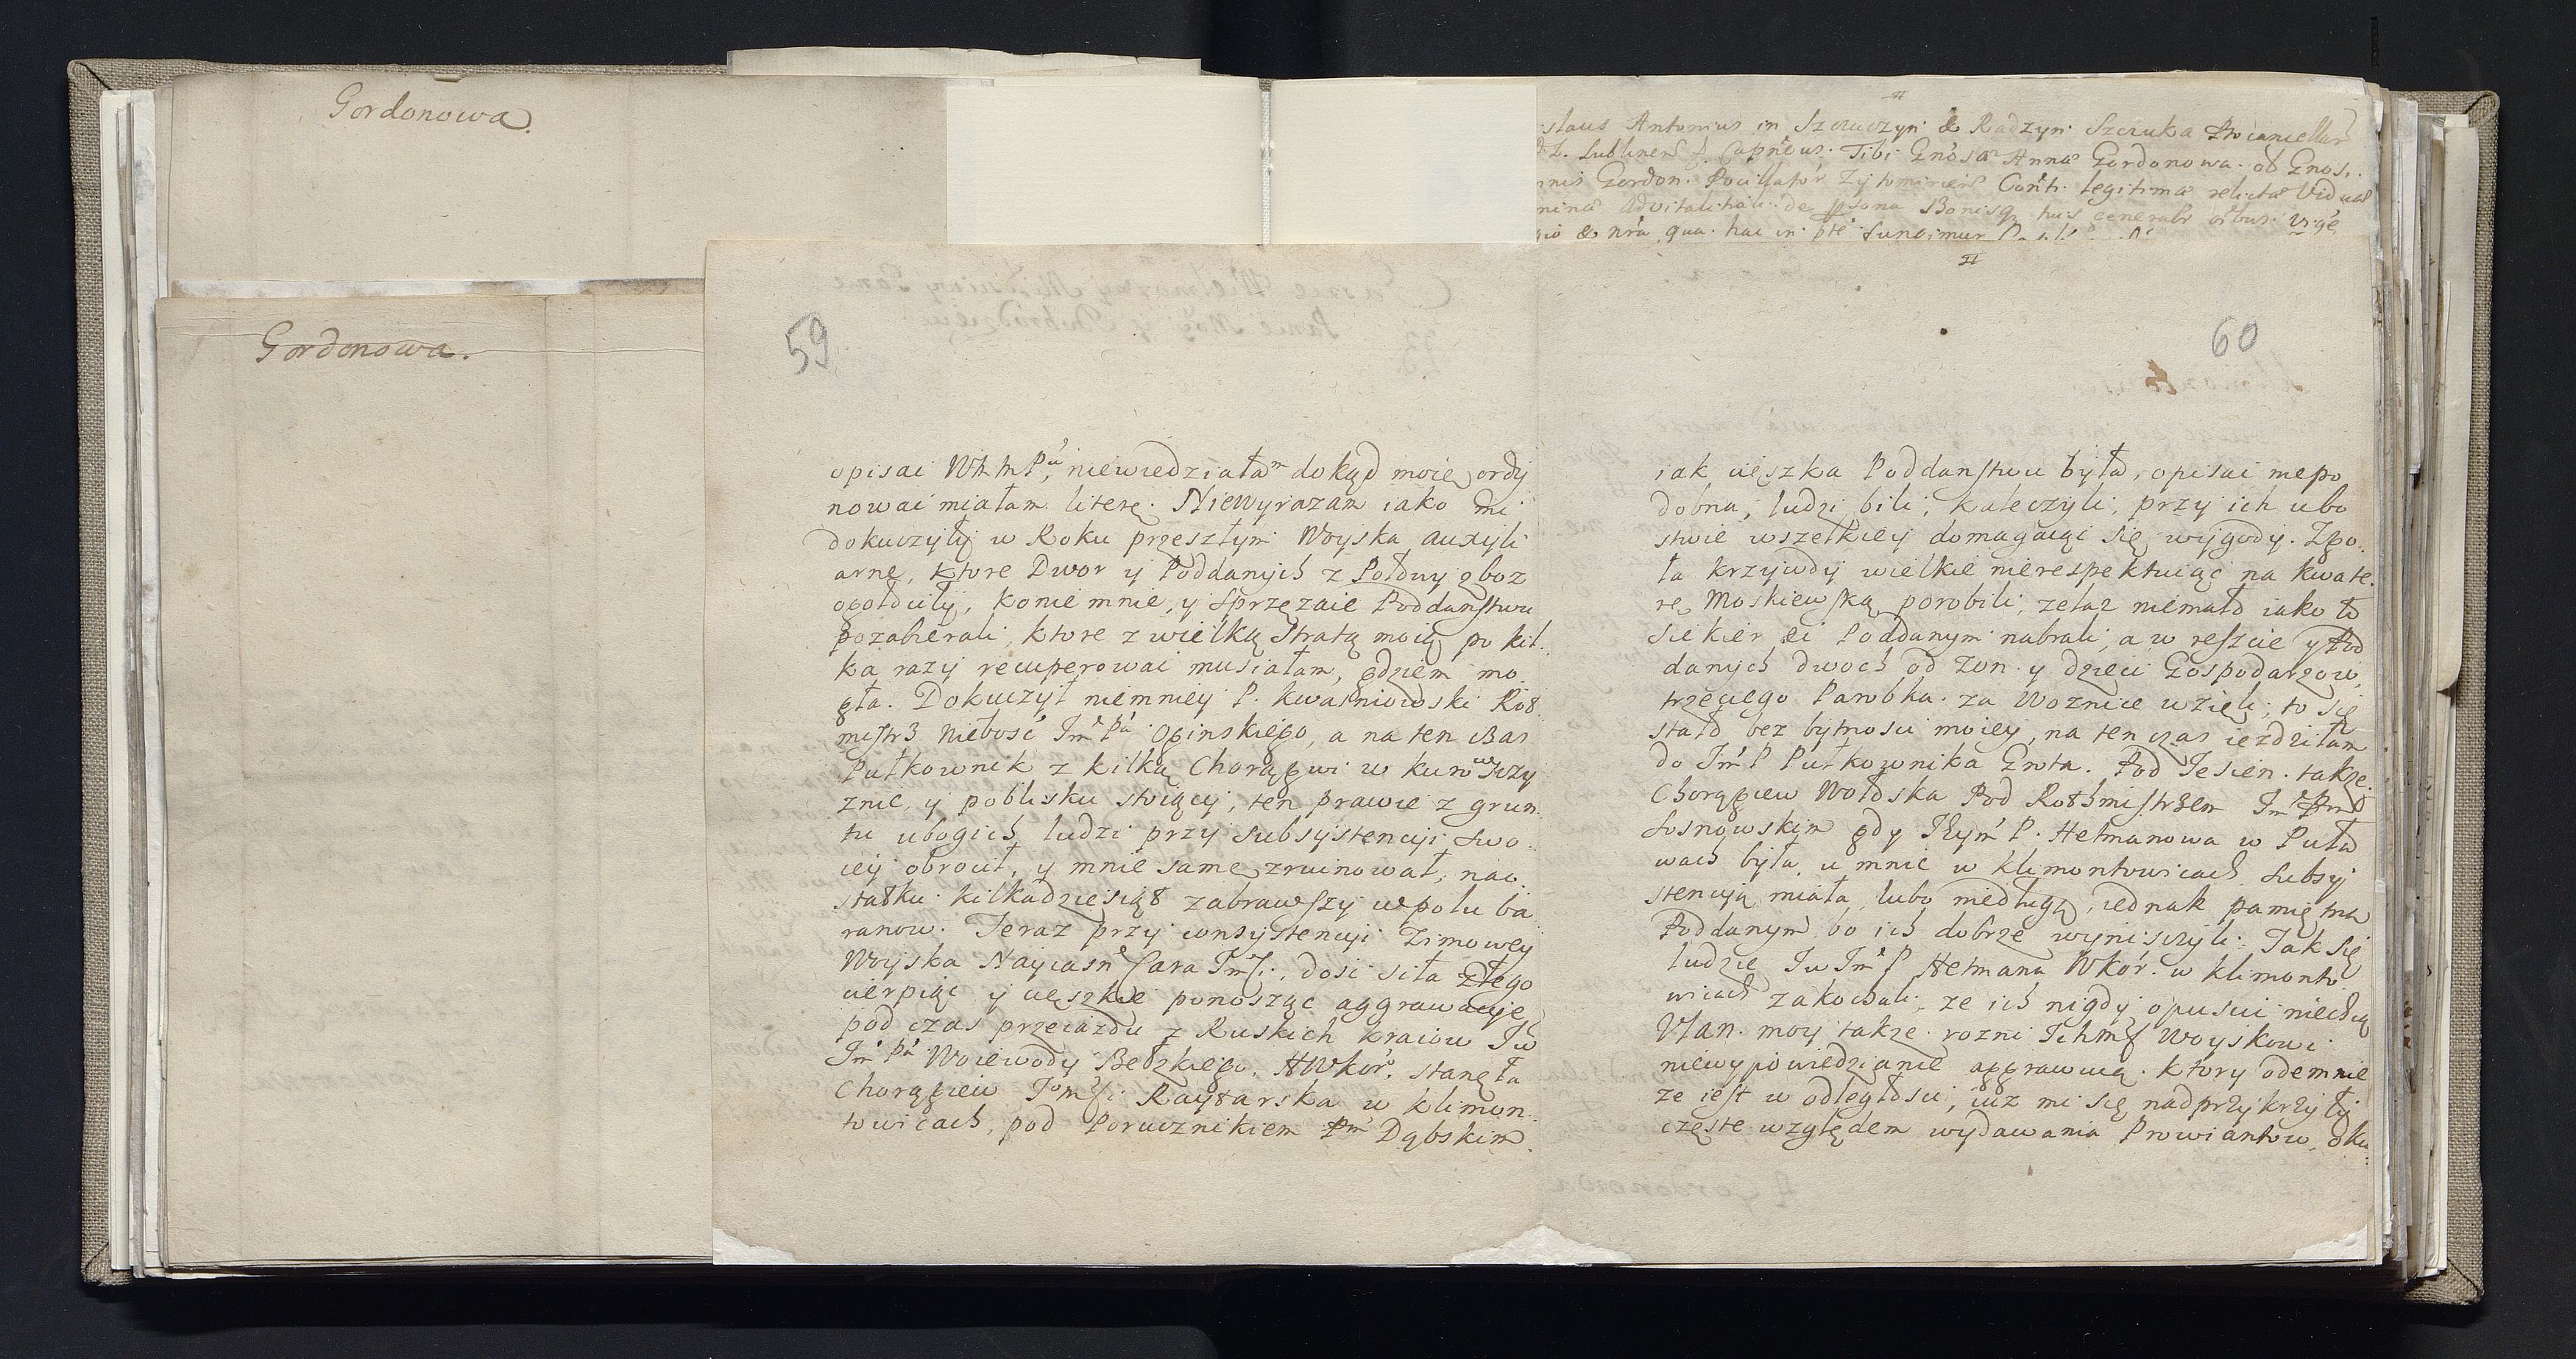 Gordonowa.
Gordonowa.
slaus Antonius in Szczuczyn & Radzyn Szczuka Procancellar
Lublinen Capneus. Tibi Gnosa Anna Gordonowa. ol Gnosi.
nnis Gordon. Pocillator Zytomirien Conth. legitima relicta Vidua
mina advitalitali de psona Bonisq tuis generalr oibus. Vrge
gio & nra, qua hac in pte fungimur
59
opisać WMMPu, niewiedziałam dokąd moię ordy
nować miałam literę. Niewyrazam iako mi
dokuczyły w Roku przeszłym Woyska auxyli
arne, ktore Dwor y Poddanych z Połowy zboz
ogołociły, konie mnie, y sprzęzaie Poddanstwu
pozabierali, ktore z wielką stratą moią po kil.
ka razy recuperować musiałam, gdziem mo
gła. Dokuczył niemniey P. Kwasniowski Rot
mistrz niebosć Jm Pa Oginskiego, a na ten czas
Pułkownik z kilką Chorągwi w kurowszczy
znie, y poblisku stoiący, ten prawie z grun
tu ubogich ludzi przy subsystencyi swo
iey obrocił, y mnie samę zruinował, nao
statku kilkadziesiąt zabrawszy wpolu ba
ranow. Teraz przy consystencyi Zimowey
Woyska Nayiasne Cara Jmsci, dosć siła złego
cierpiąc y cięszkie ponosząc aggrawacye,
pod czas przeiazdu z Ruskich kraiow Jw
Jm Pa Woiewody Bełzkiego, HWkor, stanęła
Chorągiew Jomsci Raytarska w klimon
towicach, pod Porucznikiem Pm Dąbskim.
60
iak cięszka Poddanstwu była, opisać niepo
dobna, ludzi bili, kaleczyli, przy ich ubo
stwie wszelkiey domagaiąc się wygody. Zgo
ła krzywdy wielkie nierespektuiąc na kwate.
rę Moskiewską porobili, zelaz niemało iako to
siekier &c Poddanym nabrali, a w reszcie y Pod
danych dwoch od zon y dzieci Gospodarzow,
trzeciego Parobka za Woznice wzieli, to się
stało bez bytnosci moiey, na ten czas iezdziłam
do Jm P Pułkownika Grota. Pod Jesien takze
Chorągiew Wołoska Pod Rothmistrzem Jm Pm
Sosnowskim gdy Jeym P. Hetmanowa w Puła
wach była, u mnie w klimontowicach subsy
stencyą miała, lubo niedługą, iednak pamiętna
Poddanym, bo ich dobrze wyniszczyli. Tak się
ludzie Jw Jm P Hetmana Wkor. w klimonto
wicach zakochali, ze ich nigdy opuscić niechcą
Ulan moy takze rozni Ichmsc Woyskowi
niewypowiedzianie aggrawuią. ktory odemnie
ze iest w odległosci, iuz mi się nadprzykrzyły
częste względem wydawania Prowiantow, oku